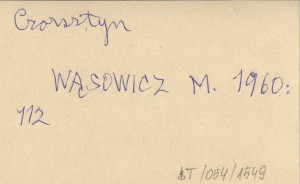 Czorsztyn
WĄSOWICZ M. 1960:
112
ŁT/054/1549